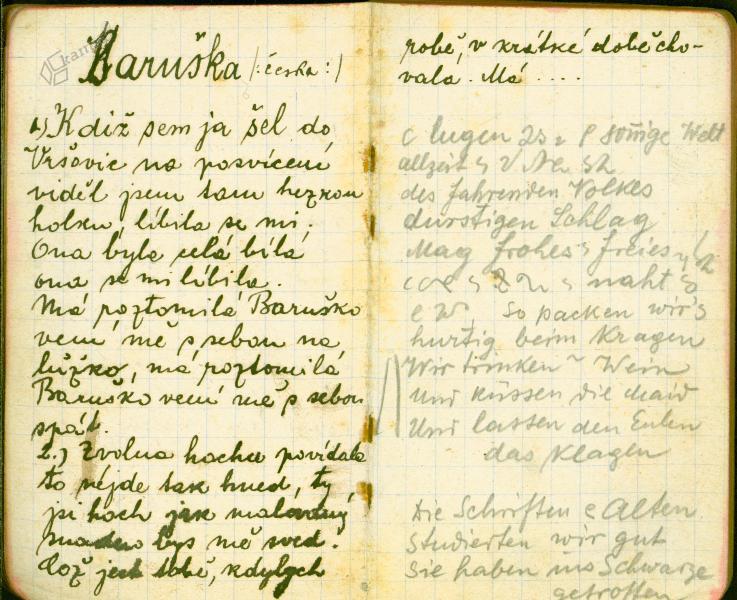 Baruška /:česka:/
1.) Kdiž sem ja šel do
Vršovic na posvícení
viděl jsem tam hezkou
holku, líbila se mi.
Ona byla celá bílá
ona se mi líbila.
Má roztomilá Baruško
vem mě s sebou na
lůžko, má roztomilá
Baruško vem mě s sebou
spát.
2.) Zvolna hochu povídala
to nejde tak hned, ty
jsi hoch jak malovaný
bys mě sved.
Což jest tobě, kdybych
robě, v krátké době cho-
vala. Má ....
sonnige Welt
allzeit
des fahrenden Volkes
durstigen Schlag
Mag frohes freies
naht
So packen wir's
hurtig beim Kragen
Wir trinken Wein
Und küssen die Maid
Und lassen den Eulen
das Klagen
Die Schriften Alten
Studierten wir gut
Sie haben ins Schwarze
getroffen